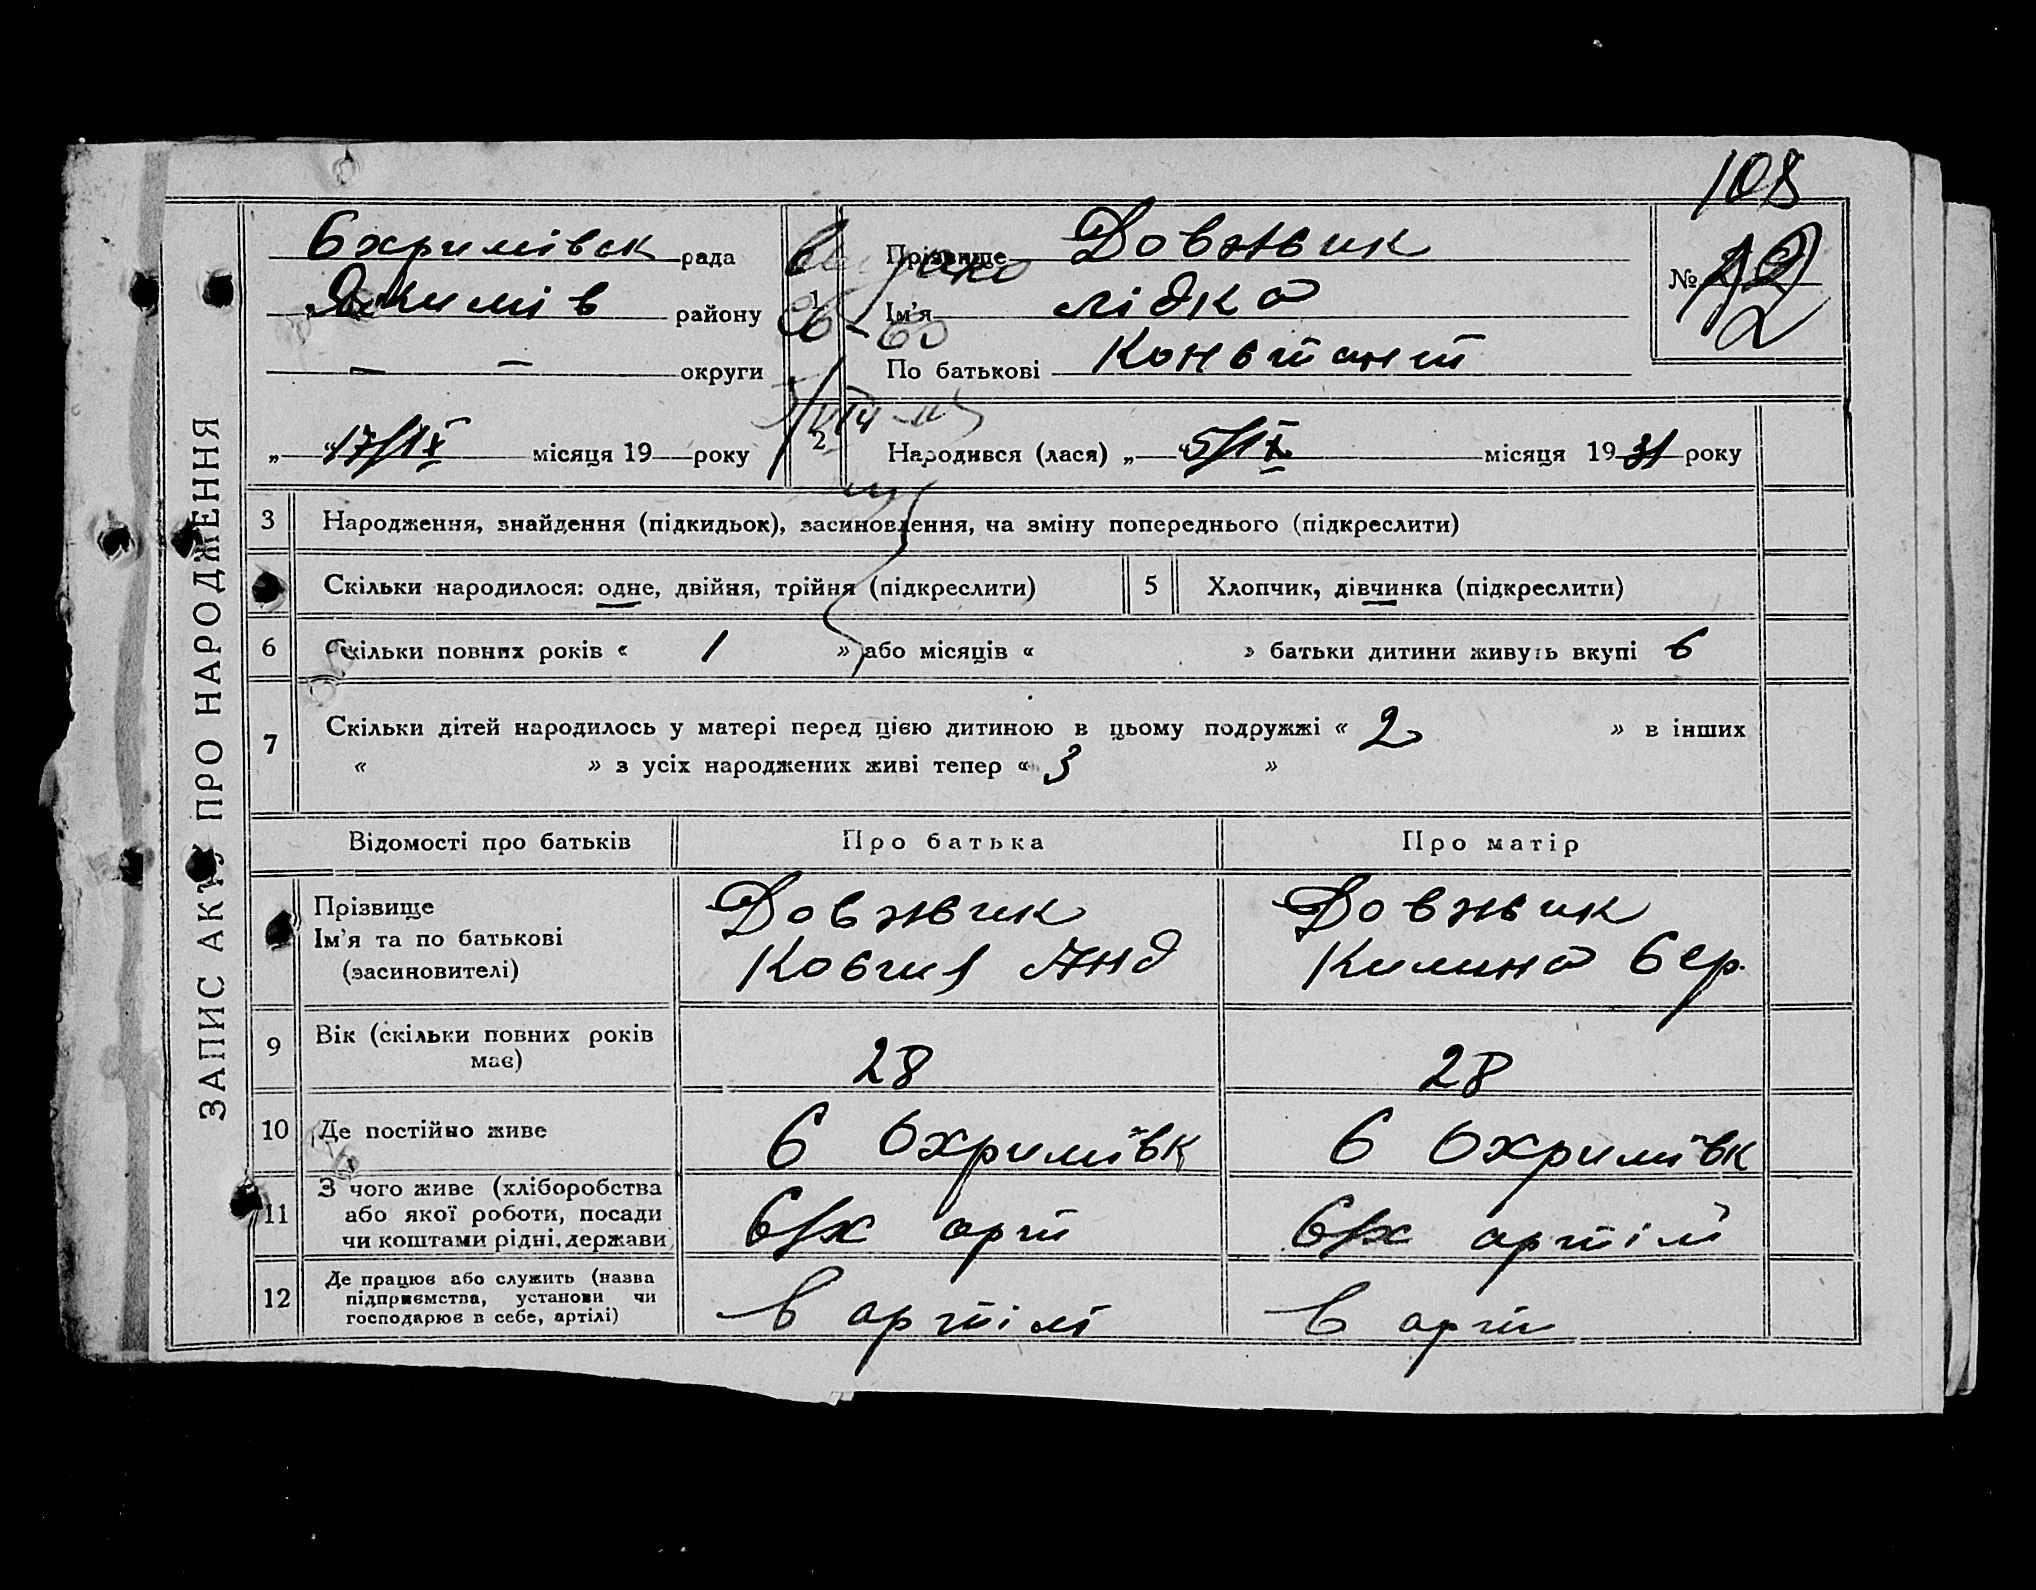 108
Охримівск рада
Якимів району
— — округи
„ 17/IX місяця 19 року
1
Прізвище Довжик
Ім'я Лідка
По батькові Констант
№ 12
2
Народився (лася) „ 5/IX місяця 1931 року
3 Народження, знайдення (підкидьок), засиновлення, на зміну попереднього (підкреслити)
Скільки народилося: одне, двійня, трійня (підкреслити)
5 Хлопчик, дівчинка (підкреслити)
6 Скільки повних років « 1 » або місяців « » батьки дитини живуть вкупі 6
7 Скільки дітей народилось у матері перед цією дитиною в цьому подружжі « 2 » в інших
« » з усіх народжених живі тепер « 3 »
Відомості про батьків
Про батька
Про матір
Прізвище
Ім'я та по батькові
(засиновителі)
Довжик
Анд
Довжик
Килина
9 Вік (скільки повних років
має)
28
28
10 Де постійно живе
с Охримівк
с Охримівк
11 З чого живе (хліборобства
або якої роботи, посади
чи коштами рідні, держави
с/х арт
с/х артілі
12 Де працює або служить (назва
підприємства, установи чи
господарює в себе, артілі)
в артілі
в арти
ЗАПИС АКТУ ПРО НАРОДЖЕННЯ